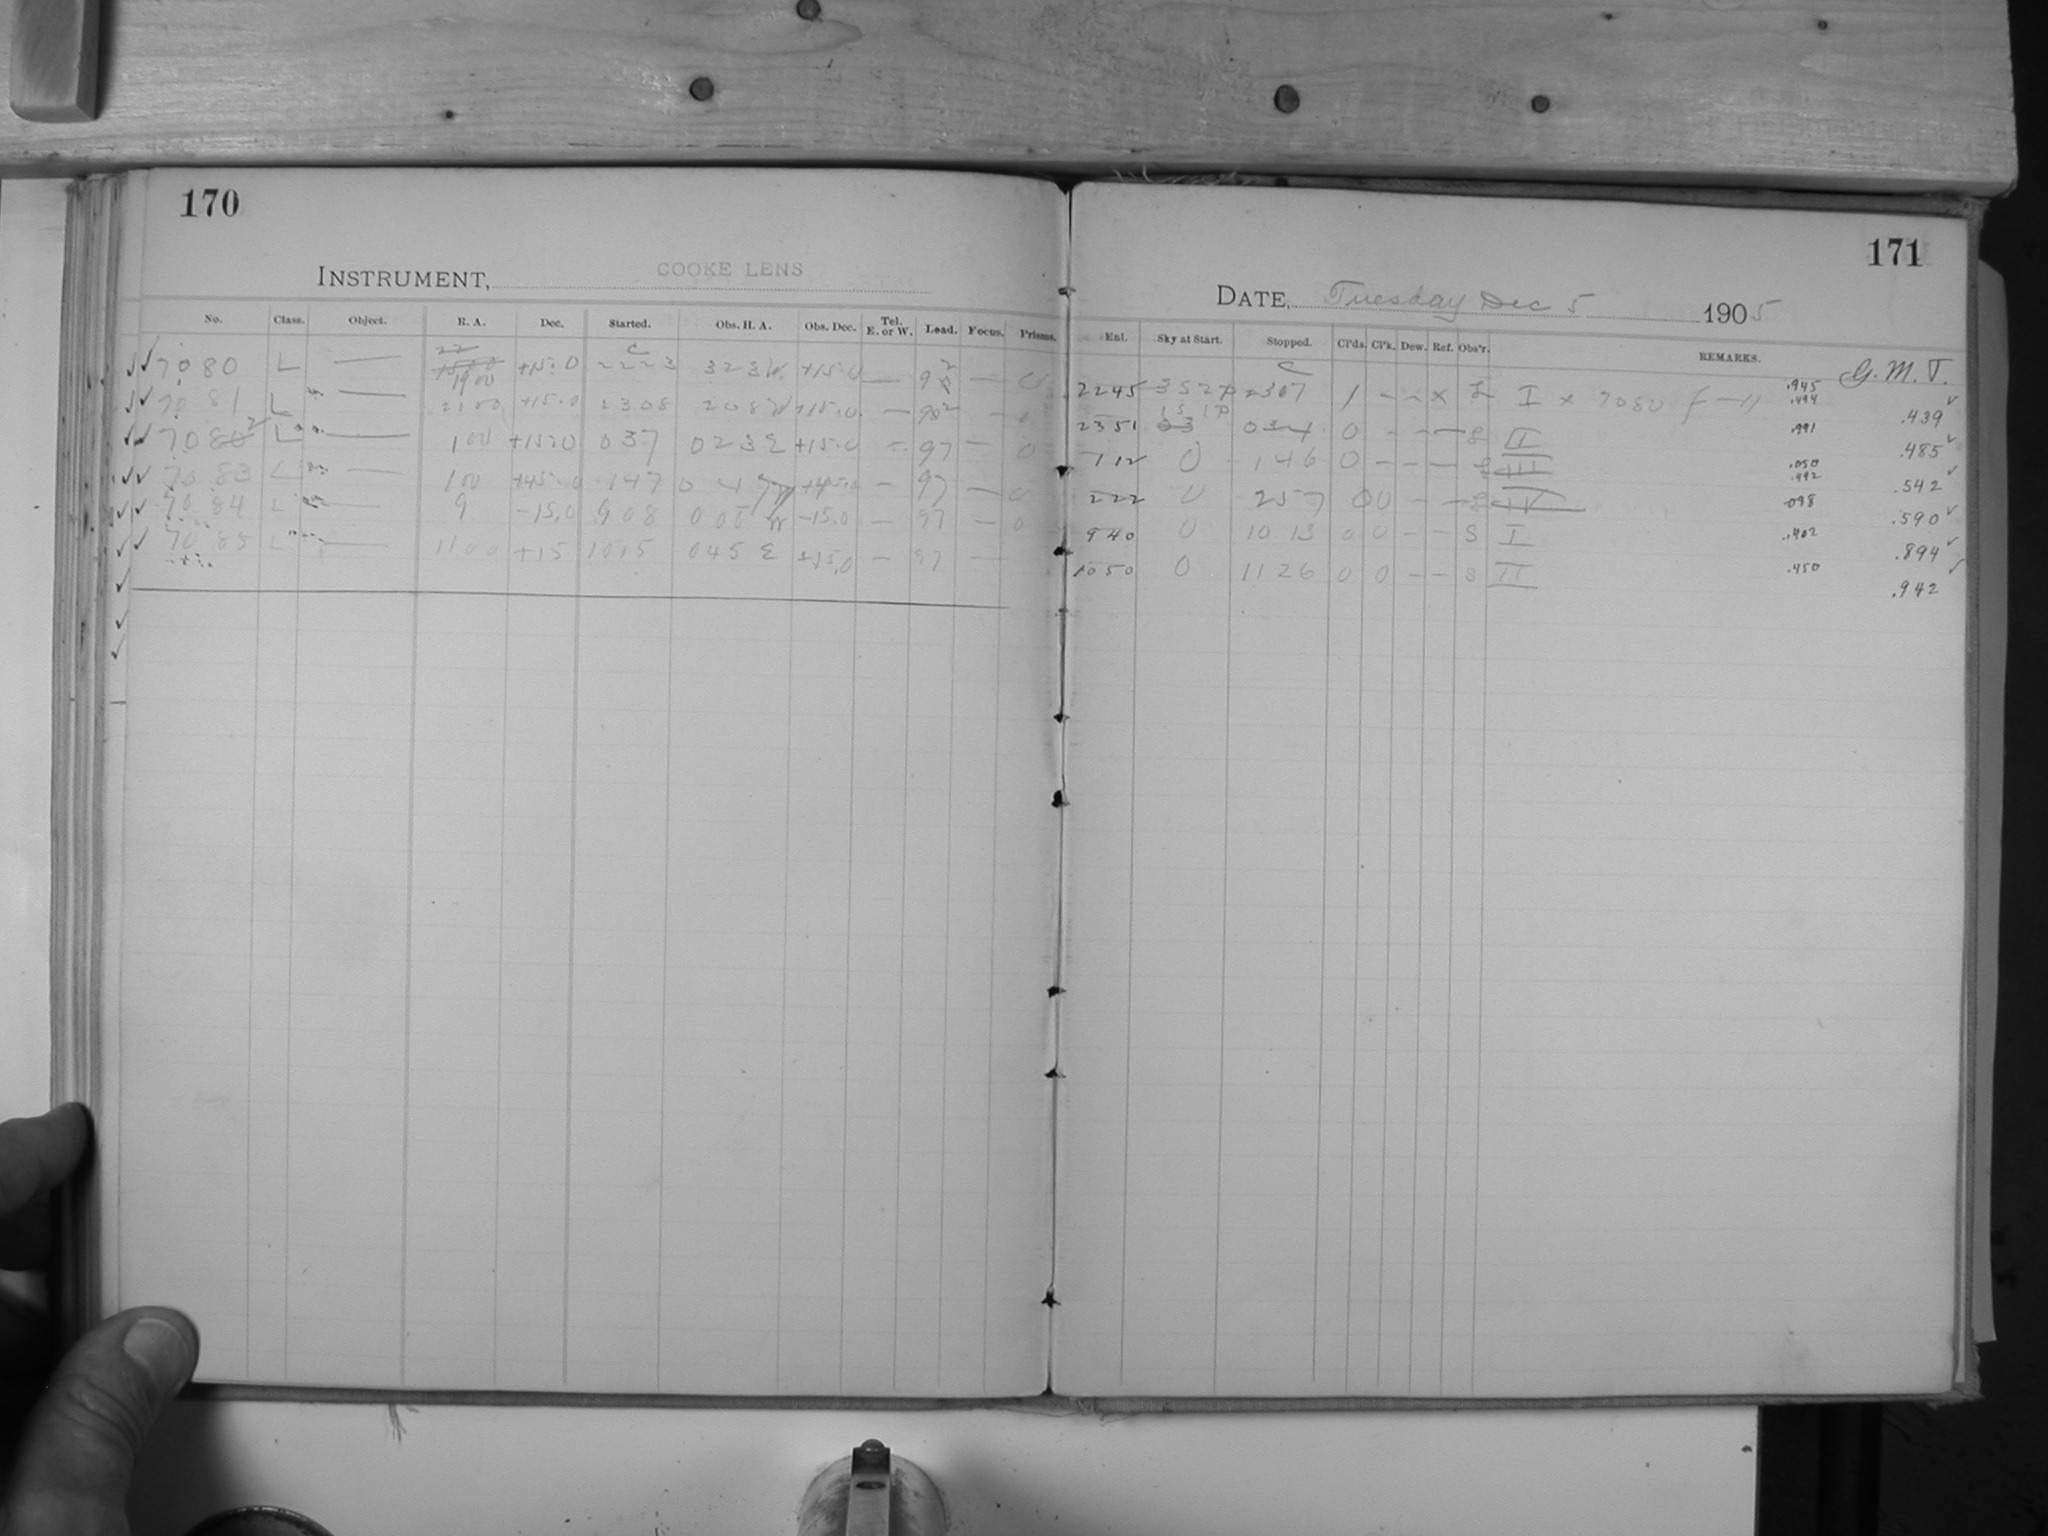 170
INSTRUMENT, COOKE LENS
No. Class. Object. R. A. Dec. Started. Obs. H. A. Obs. Dec. Tel. E. or W. Lead. Focus. Prisms.
7080 L — 22 1900 +15.0 2223 323W +15.0 — 92 —
7081 L — 2100 +15.0 2308 208W +15.0 — 982 —
7082 L — 100 +15.0 037 023E +15.0 — 97 — 0
7083 L — 100 +45.0 147 +45.0 — 97 — 0
7084 L — 9 -15.0 908 008W -15.0 — 97 — 0
7085 L — 1100 +15 1015 045E +15.0 — 97 —
171
DATE, Tuesday Dec 5 1905
Enl. Sky at Start. Stopped. Cl'ds. Cl'k. Dew. Ref. Obs'r. REMARKS. G. M. T.
2245 352p 2307 1 - - x L I x 7080 f—11 .945 .494 .439
2351 151p 0 - - - II .991 .485
112 0 146 0 - - - III .050 .492 .542
222 0 257 0 0 - - IV .098 .590
940 0 1013 0 0 - - S I .402 .894
1050 0 1126 0 0 - - S II .450 .942